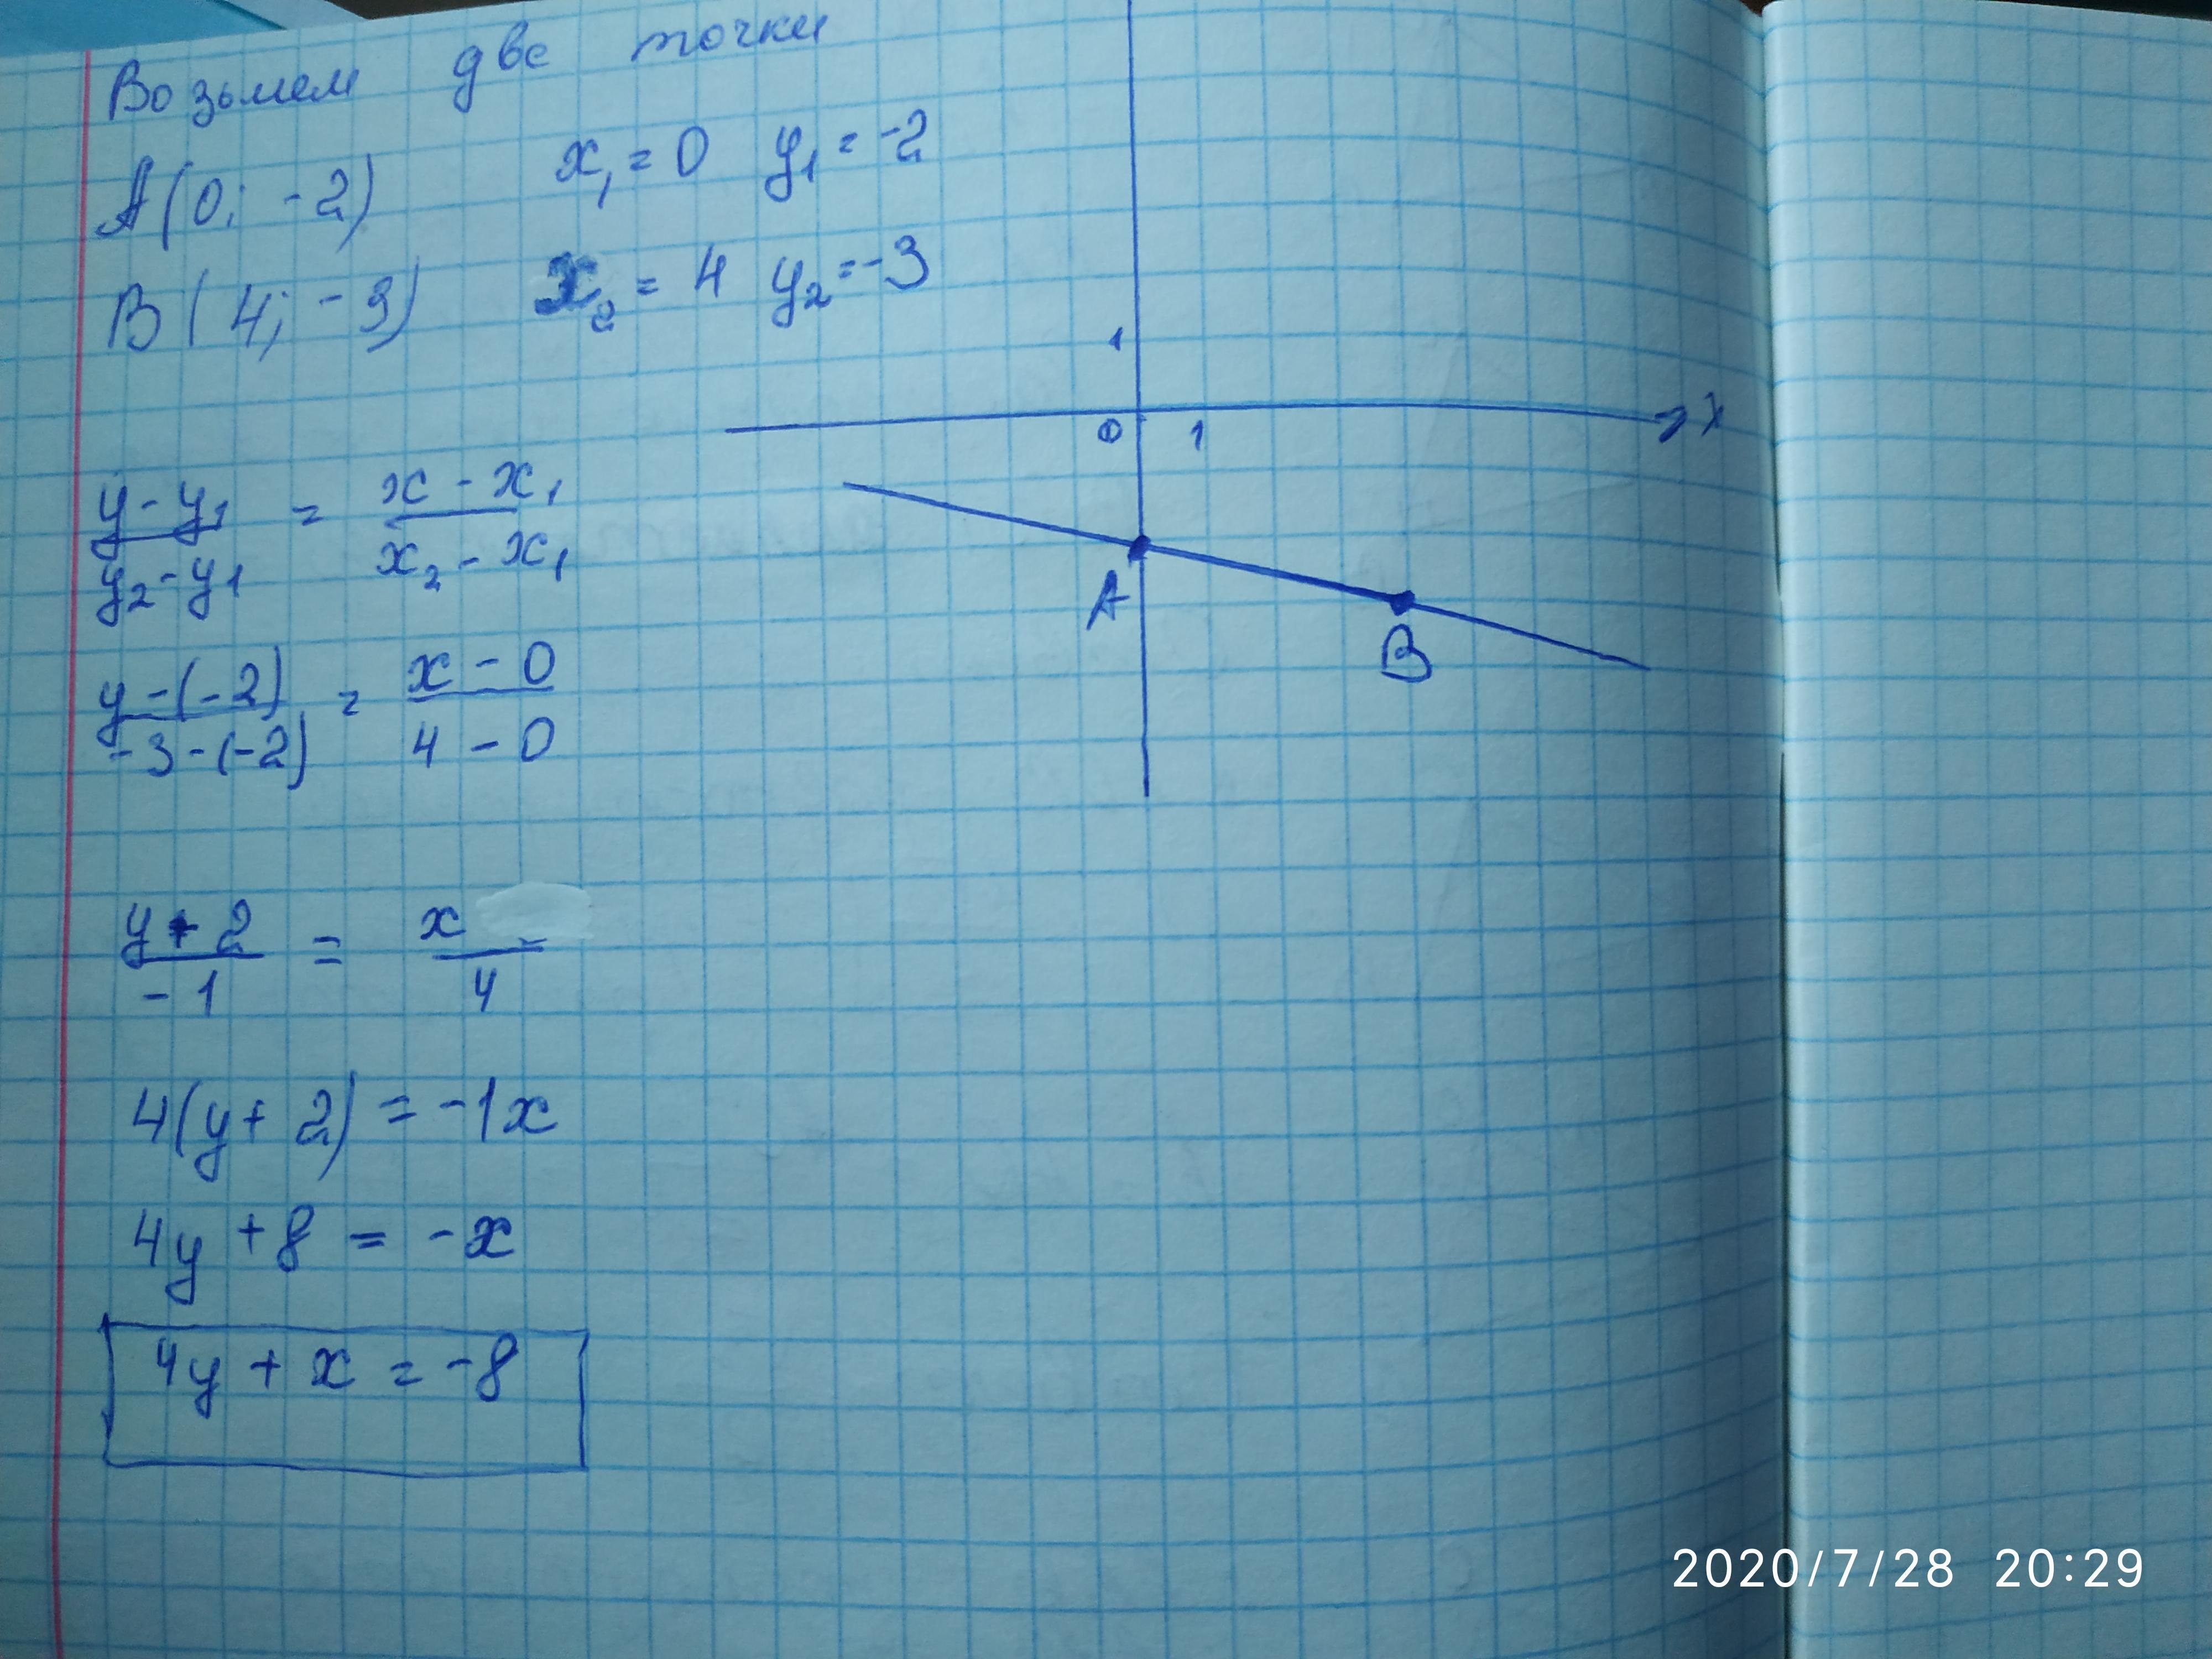 Возьмем две точки
A(0; -2) x₁ = 0 y₁ = -2
B(4; -3) x₂ = 4 y₂ = -3
1
0 1 x
(y - y₁)/(y₂ - y₁) = (x - x₁)/(x₂ - x₁)
A
B
(y - (-2))/(-3 - (-2)) = (x - 0)/(4 - 0)
(y + 2)/(-1) = x/4
4(y + 2) = -1x
4y + 8 = -x
4y + x = -8
2020/7/28 20:29